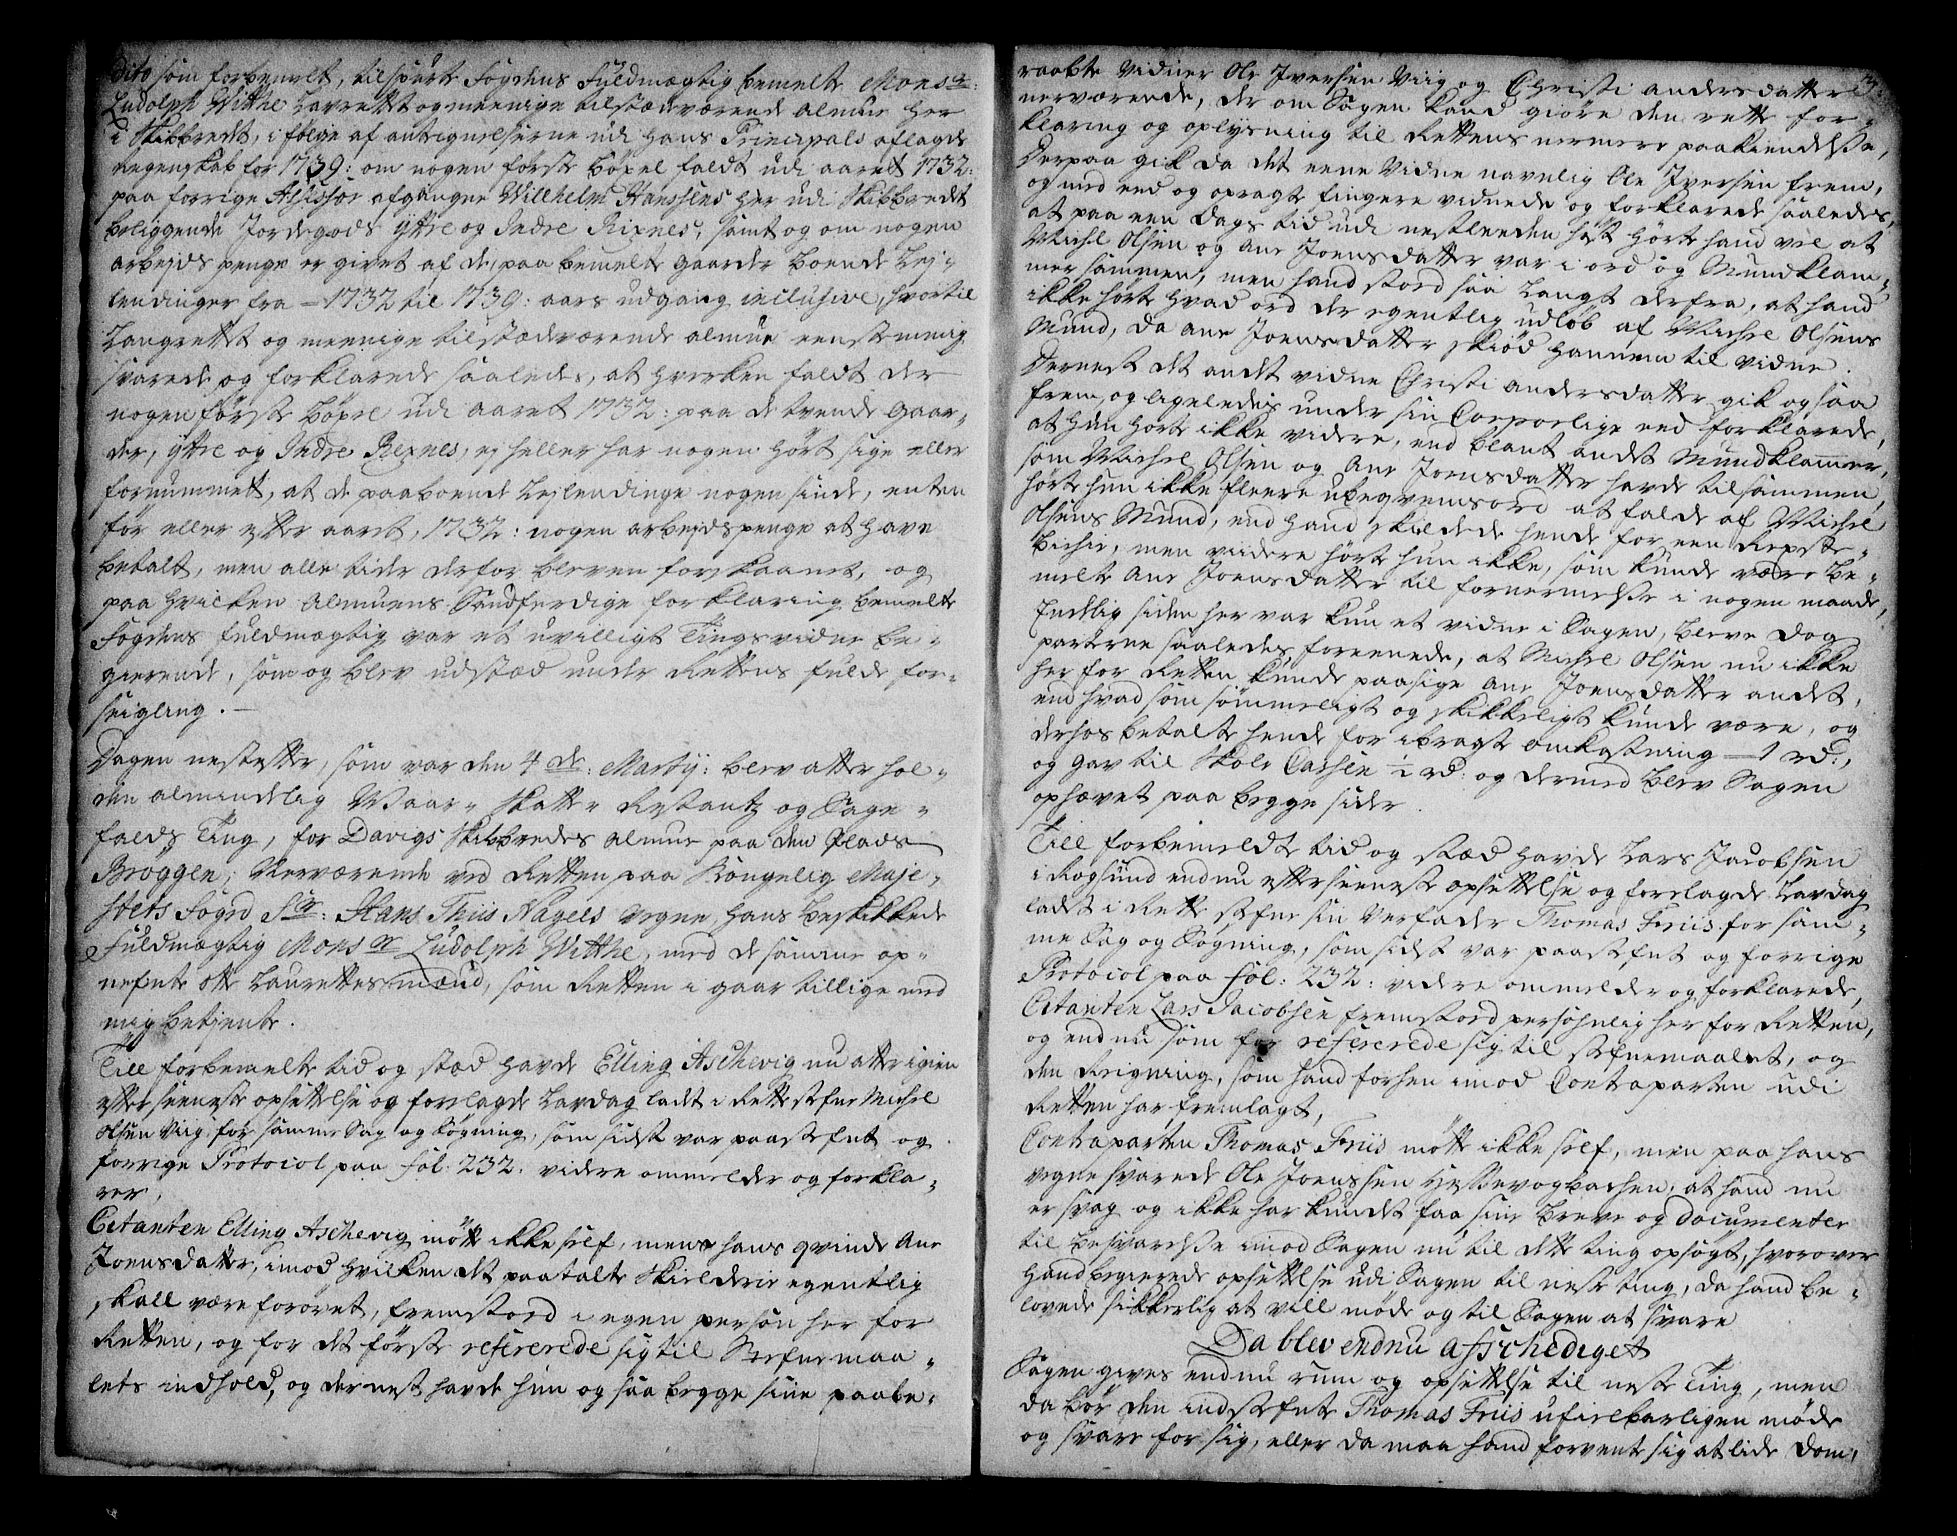 dito som forbemelt, tilspurte Fogdens Fuldmægtig bemelte Monsr:
Ludolph Witthe Lavrettet og meenige tilstædværende Almue her
i Skibbredet, i følge af antignelserne udi hans Principals aflagde
Regenskab for 1739: om nogen første Bøxel faldt udi aaret 1732:
paa forrige Assissor afgangne Willhelm Hanssens her udi Skibbredet
beliggende Jordegods Yttre og Indre Rixnes, samt og om nogen
arbejds penge er givet af de, paa bemelte gaarder boende Lej-
lendinger fra - 1732 til 1739: aars udgang inclusive, hvortil
Laugrettet og meenige tilstædværende almue eenstemmig
svarede og forklarede saaledes, at hverken faldt der
nogen første Bøxle udi aaret 1732: paa de tvende Gaar-
der, Yttre og Indre Rexnes, ej heller har nogen hørt sige eller
fornummet, at de paaboende Lejlendinge nogensinde, enten
før eller efter aaret, 1732: nogen arbejdspenge at have
betalt, men alle tider derfor bleven forskaanet, og
paa hvilken Almuens Sandferdige forklaring bemelte
Fogdens fuldmægtig var et uvilligt Tingsvidne be-
gierende, som og blev udstæd under Rettens fulde for-
seigling. -
Dagen nestefter, som var den 4de: Marty: blev atter hol-
den almindelig Waar- Skatte- Restantz og Sage-
falds Ting, for Davigs Skibbredes almue paa den Plads
Brøggen, Nerværende ved Retten paa Kongelig Maje-
stets Fogd Sr: Hans Thiis Nagels vegne, hans beskikkede
Fuldmægtig Monsr Ludolph Witthe, med de samme op-
nefnte otte Laurettesmænd, som Retten i gaar tillige med
mig betjente.
Till forbemelte tid og stæd havde Elling Aschevig nu atter igien
efter seeneste opsettelse og forelagde Lavdag ladet i Rette stefne Michel
Olsen Viig for samme Sag og Søgning, som sidst var paastefnt og
forrige Protocol paa fol. 232. videre ommelder og forkla-
rer,
Citanten Elling Aschevig møtte ikke self, mens hans qvinde Ane
Joensdatter, imod hvilken det paatalte Skielderie egentlig
skall være forøvet, fremstod i egen person her for
Retten, og for det første refererede sig til Stefnemaa-
lets indhold, og dernest havde hun og saa begge sine paabe-
raabte Vidner Ole Iversen Viig og Christi Andersdatter
nerværende, der om Sagen kand giøre den rette for-
klaring og oplysning til Rettens nermere paakiendelse,
Derpaa gik da det eene Vidne navnlig Ole Iversen frem,
og med eed og opragte fingere vidnede og forklarede saaledes,
at paa een Dags tid udi nestleeden høst hørte hand vel at
Michel Olsen og Ane Joensdatter var i ord og Mundklam-
mer sammen, men hand stod saa langt derfra, at hand
ikke hørte hvad ord der egentlig udløb af Michel Olsens
Mund, da Ane Joensdatter skiød hannem til vidne.
Dernest det andet vidne Christi Andersdatter gik og saa
frem, og ligeledes under sin Corporlige eed forklarede,
at hun hørte ikke videre, end blant andet Mundklammer,
som Michel Olsen og Ane Joensdatter havde tilsammen,
hørte hun ikke fleere ubeqvemsord at falde af Michel
Olsens Mund, end hand skieldede hende for een Repste-
bichie, men viidere hørte hun ikke, som kunde være be-
melte Ane Joensdatter til fornermelse i nogen maade,
Endelig siden her var kun et vidne i Sagen, bleve dog
parterne saaledes foreenede, at Michel Olsen nu ikke
her for Retten kunde paasige Ane Joensdatter andet,
end hvad som sømmeligt og skikkeligt kunde være, og
derhos betalte hende for ibragte omkostning - 1 rd:,
og gav til Skole Cassen ½ rd: og dermed blev Sagen
ophævet paa begge sider.
Till forbemeldte tid og stæd havde Lars Jacobsen
i Rogsund endnu efter seeneste opsettelse og forelagde Lavdag
ladet i Rette stefne sin Verfader Thomas Friis for sam-
me Sag og Søgning, som sidst var paastefnt og forrige
Protocol paa fol: 232: videre ommelder og forklarede,
Citanten Lars Jacobsen fremstod persohnlig her for Retten,
og endnu som før refererede sig til stefnemaalet, og
den Reigning, som hand forhen imod Contraparten udi
Retten har fremlagt,
Contraparten Thomas Friis møtte ikke self, men paa hans
vegne svarede Ole Joenssen Hessevogbachen, at hand nu
er svag og ikke har kundet faa sine Breve og documenter
til besvarelse imod Sagen nu til dette ting opsøgt, hvorover
hand begierede opsettelse udi Sagen til neste ting, da hand be-
lovede sikkerlig at vill møde og til Sagen at svare
Da blev endnu afschediget
Sagen gives endnu rum og opsettelse til neste Ting, men
da bør den indstefnte Thomas Friis ufeilbarligen møde
og svare for sig, eller da maa hand forvente sig at lide Dom,